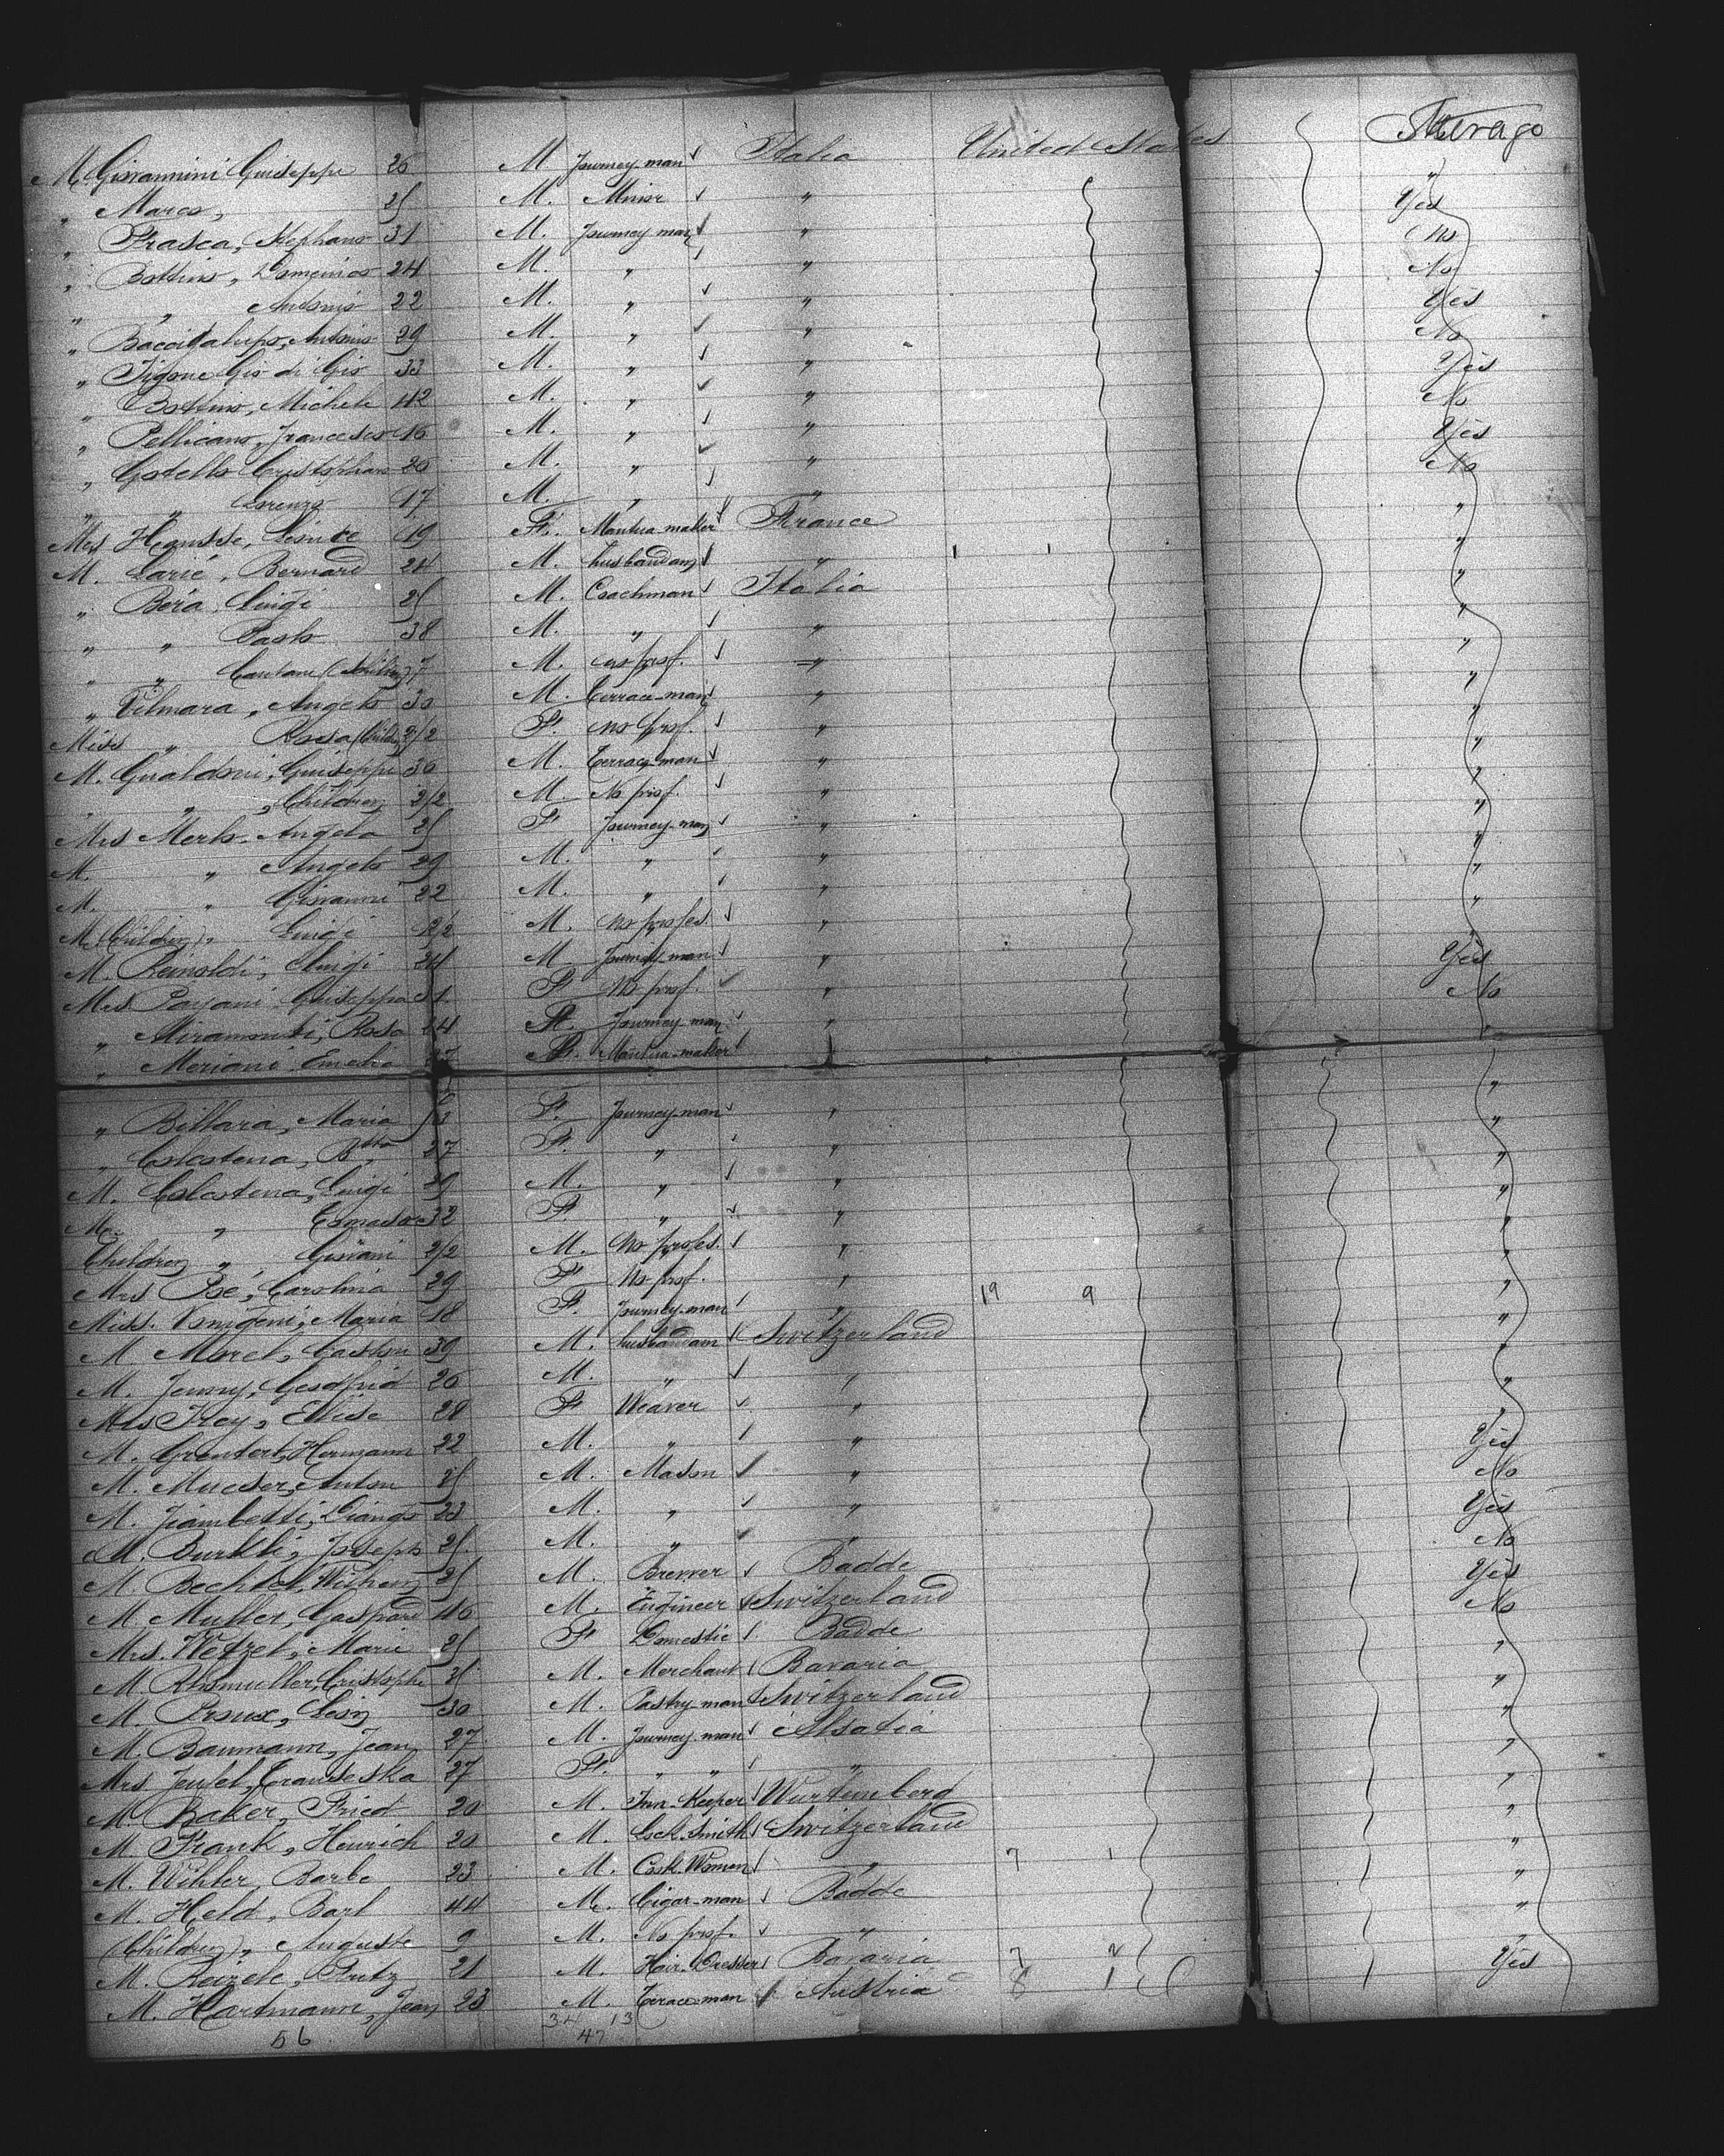 M. Giovannini Guiseppe 26 M Journey man Italia United States Sterago
" Marco, 25 M. Minor " "
" Frasca, Stephano 31 M. Journey man " Yes
" Bottino, Domenico 24 M. " " No
" " Antonio 22 M. " " No
" Baccigalupo, Antonio 29 M. " " Yes
" Figone Gio di Gio 33 M. " " No
" Bottino, Michele 42 M. " " Yes
" Pellicano, Francesco 46 M. " " No
" Costello Cristophoro 26 M. " " Yes
" " Lorenzo 47 M. " " No
Mrs Hausse, Léonice 19 F. Mantua maker France "
M. Larié, Bernard 24 M. husbandam " 1 1 "
" Bera Luigi 25 M. Coachman Italia "
" " Paolo 38 M. " " "
" " Caietano (Children) 7 M. no prof. " "
" Vilmara, Angelo 30 M. Terrace-man " "
Miss " Rosa (Children) 2/2 F. no prof. " "
M. Gualdoni, Guiseppe 30 M. Terrace-man " "
" " Children 2/2 M No prof. " "
Mrs Merlo, Angela 25 F Journey-man " "
M. " Angelo 29 M. " " "
M. " Giovanni 22 M. " " "
M. (Children) " Luigi 2/2 M. No profes. " "
M. Reinoldi, Luigi 24 M Journey-man " Yes
Mrs Payani Guiseppa 31 F No prof. " No
" Miramonti, Rosa 24 F. Journey man "
" Meriani Emelia 27 F. Mantua-maker
" Billara, Maria F. Journey-man " "
" Colestena, Btta 27 F. " " "
M. Colestena, Luigi 29 M. " " "
" Tomaso 32 F. " " "
Children " Giovani 2/2 M. No profes. " "
Mrs Psé, Carolina 29 F No prof. " "
Miss. Vonigeni, Maria 18 F. Journey-man " 19 9 "
M. Morel, Gaston 39 M. husbandam Switzerland "
M. Jenny, Gesdfrid 26 M. " " "
Mrs Frey, Elise 28 F Weaver " "
M. Greutert, Hermann 22 M. " " "
M. Mueser, Anton 25 M. Mason " Yes
M. Jiambetti, Giango 23 M. " " No
M. Burkli, Joseph 25 M. " " Yes
M Bechtel, Wilhem 25 M. Brewer Badde No
M Muller, Gaspard 46 M. Engineer Switzerland Yes
Mrs. Wetzel, Marie 25 F Domestic Badde No
M Rhsmuller, Cristophe M. Merchant Bavaria "
M. Proux, Léon 30 M. Pastry man Switzerland "
M. Baumann, Jean 27 M. Journey man Alsatia "
Mrs Jeufel, Franseska 27 F. " " "
M. Baker, Fried 20 M. Inn-Keeper Wurtemberd "
M Frank, Heinrich 20 M. Lock-Smith Switzerland "
M. Wihler, Barbe 23 M. Cook-Women " 7 1 "
M. Held, Barl 44 M. Cigar-man Badde "
(Children) " Auguste 9 M. No prof. " "
M. Reizele, Fritz 21 M. Hair-Dresser Bavaria 7 2 "
M. Hartmann, Jean 23 M. Terace-man Austria 8 1 Yes
56 34 13
47